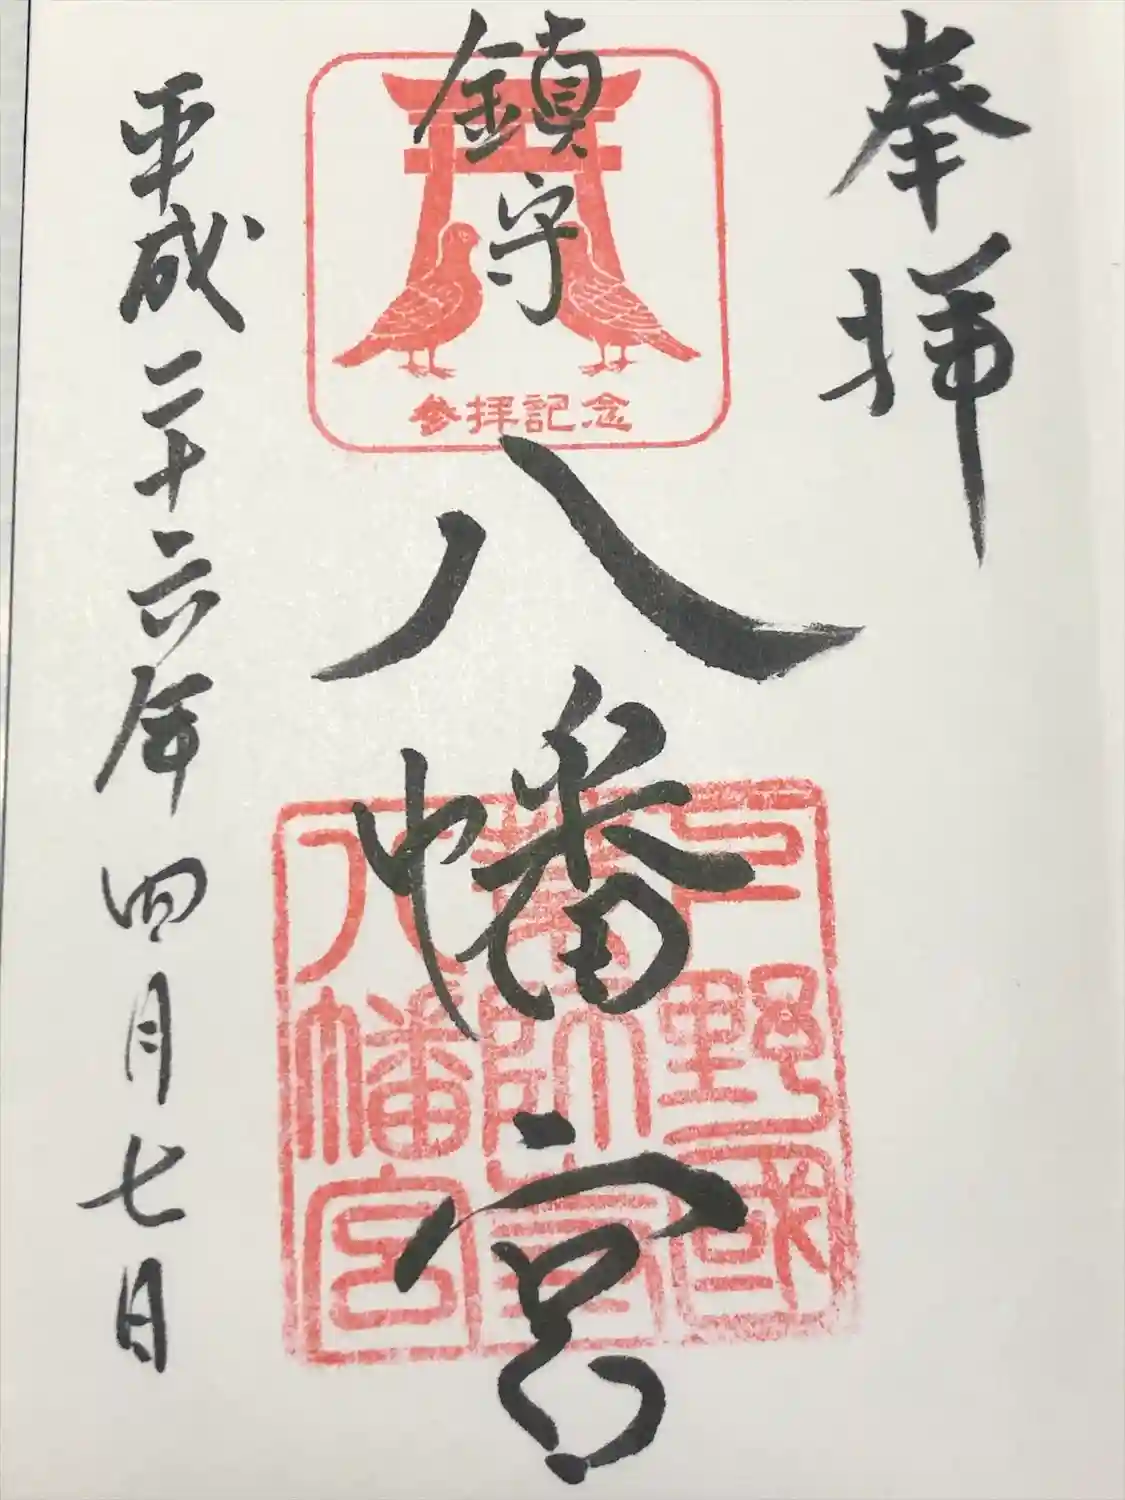 奉拝
鎮守
参拝記念
八幡宮
上野國
薬師堂
八幡宮
平成二十六年四月七日